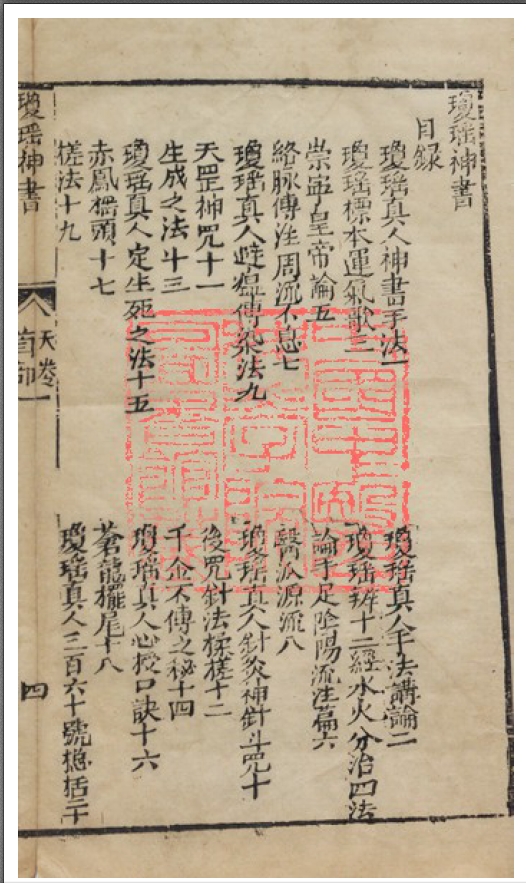 瓊瑤神書
目録
瓊瑤真人神書手法一
瓊瑤真人手法講論二
瓊瑤標本運氣歌三
瓊瑤辨十二經水火分治四法
崇寍皇帝論五
論手足陰陽流注篇六
絡脉傳注周流不息七
醫派源流八
瓊瑤真人避瘟傳染法九
瓊瑤真人針灸神針斗咒十
天罡神咒十一
後咒針法樣槎十二
生成之法十三
千金不傳之秘十四
瓊瑤真人定生死之法十五
瓊瑤真人心授口訣十六
赤鳳摇頭十七
蒼龍擺尾十八
槎法十九
瓊瑤真人三百六十號檃括二十
瓊瑤神書
天卷
首部一
四